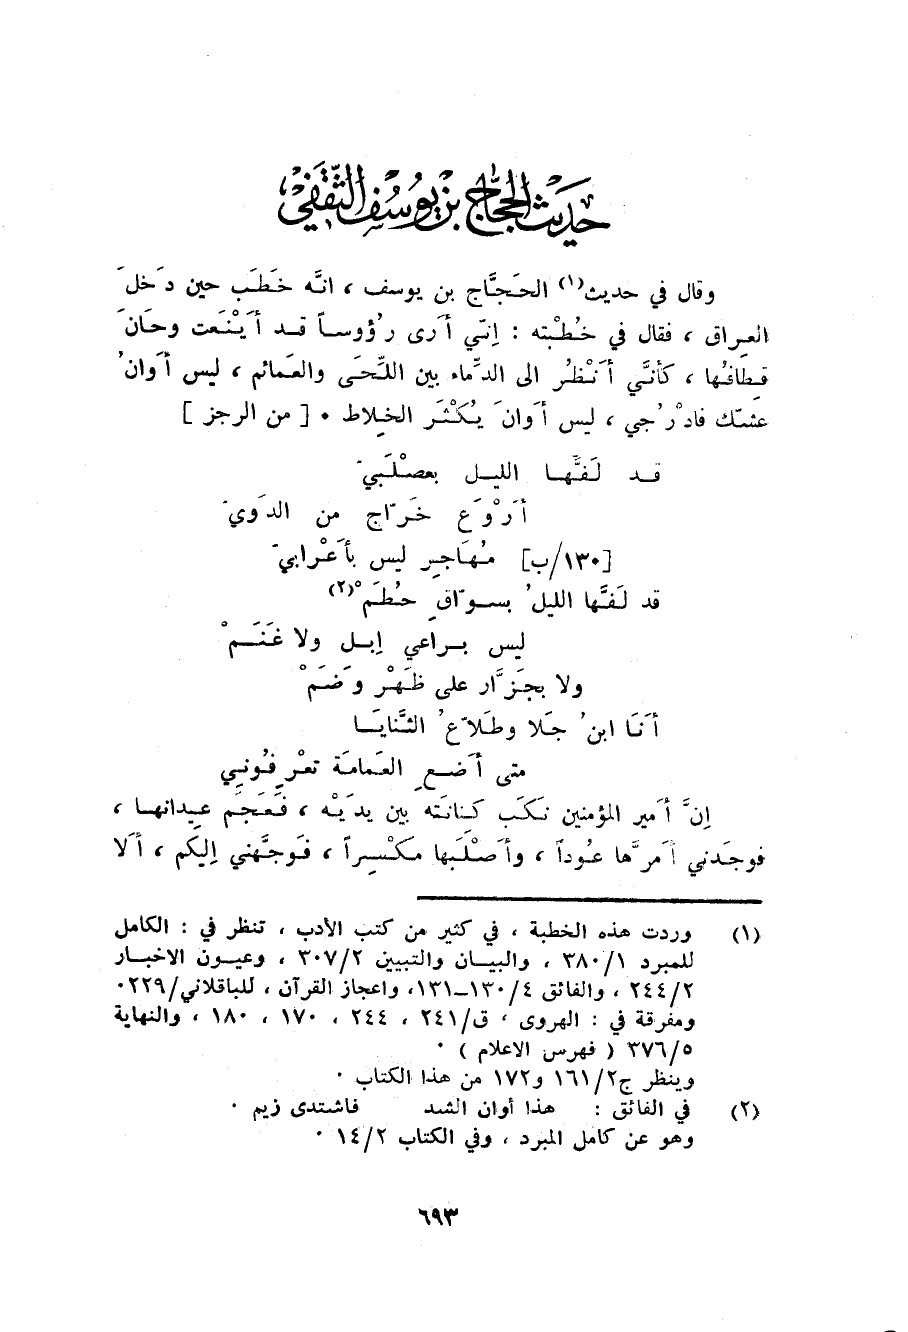 حديث الحجاج بن يوسف الثقفي
وقال في حديث(١) الحَجَّاج بن يوسف ، انَّه خَطَب حين دَخلَ
العِراق ، فقال في خُطْبته : إنّي أَرى رُؤوساً قد أَيْنَعت وحَانَ
قِطافُها ، كأنّي أَنْظُر الى الدِّماء بين اللِّحَى والعَمائم ، ليس أَوانُ
عشّك فادْرُجي ، ليس أَوانَ يُكْثَر الخِلاط ٠ [ من الرجز ]
قد لَفَّها الليل بعصْلَبيّ
أَرْوَع خَرّاج من الدَويّ
[١٣٠/ب] مُهَاجِر ليس بأَعْرابيّ
قد لَفَّها الليلُ بسوّاقٍ حُطَمْ(٢)
ليس بِراعي إبل ولا غَنَمْ
ولا بجَزَّار على ظَهْر وَضَمْ
أَنَا ابنُ جَلا وطَلاّعُ الثَّنايَا
متى أَضعِ العَمامَة تعْرِفُوني
إنَّ أَمير المؤمنين نَكَبَ كِنانَته بين يدَيْه ، فَعَجَم عِيدانها ،
فوجَدني أَمرَّها عُوداً ، وأَصْلَبها مكْسِراً ، فَوجَّهني إليكم ، أَلا
(١) وردت هذه الخطبة ، في كثير من كتب الأدب ، تنظر في : الكامل
للمبرد ٣٨٠/١ ، والبيان والتبيين ٣٠٧/٢ ، وعيون الاخبار
٢٤٤/٢ ، والفائق ٤/١٣٠–١٣١، واعجاز القرآن ، للباقلاني/٢٢٩٠
ومفرقة في : الهروى ، ق/٢٤١ ، ٢٤٤ ، ١٧٠ ، ١٨٠ ، والنهاية
٣٧٦/٥ ( فهرس الاعلام ) ٠
وينظر ج٢/١٦١ و١٧٢ من هذا الكتاب ٠
(٢) في الفائق : هذا أوان الشد فاشتدى زيم ٠
وهو عن كامل المبرد ، وفي الكتاب ١٤/٢ ٠
٦٩٣